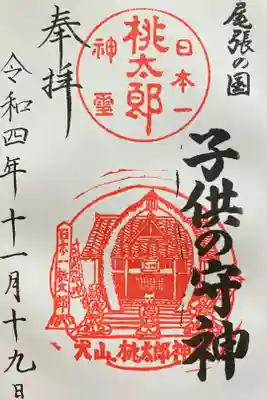 尾張の国
子供の守神
日本一
桃太郎
神霊
奉拝
日本一桃太郎
犬山 桃太郎神
令和四年十一月十九日